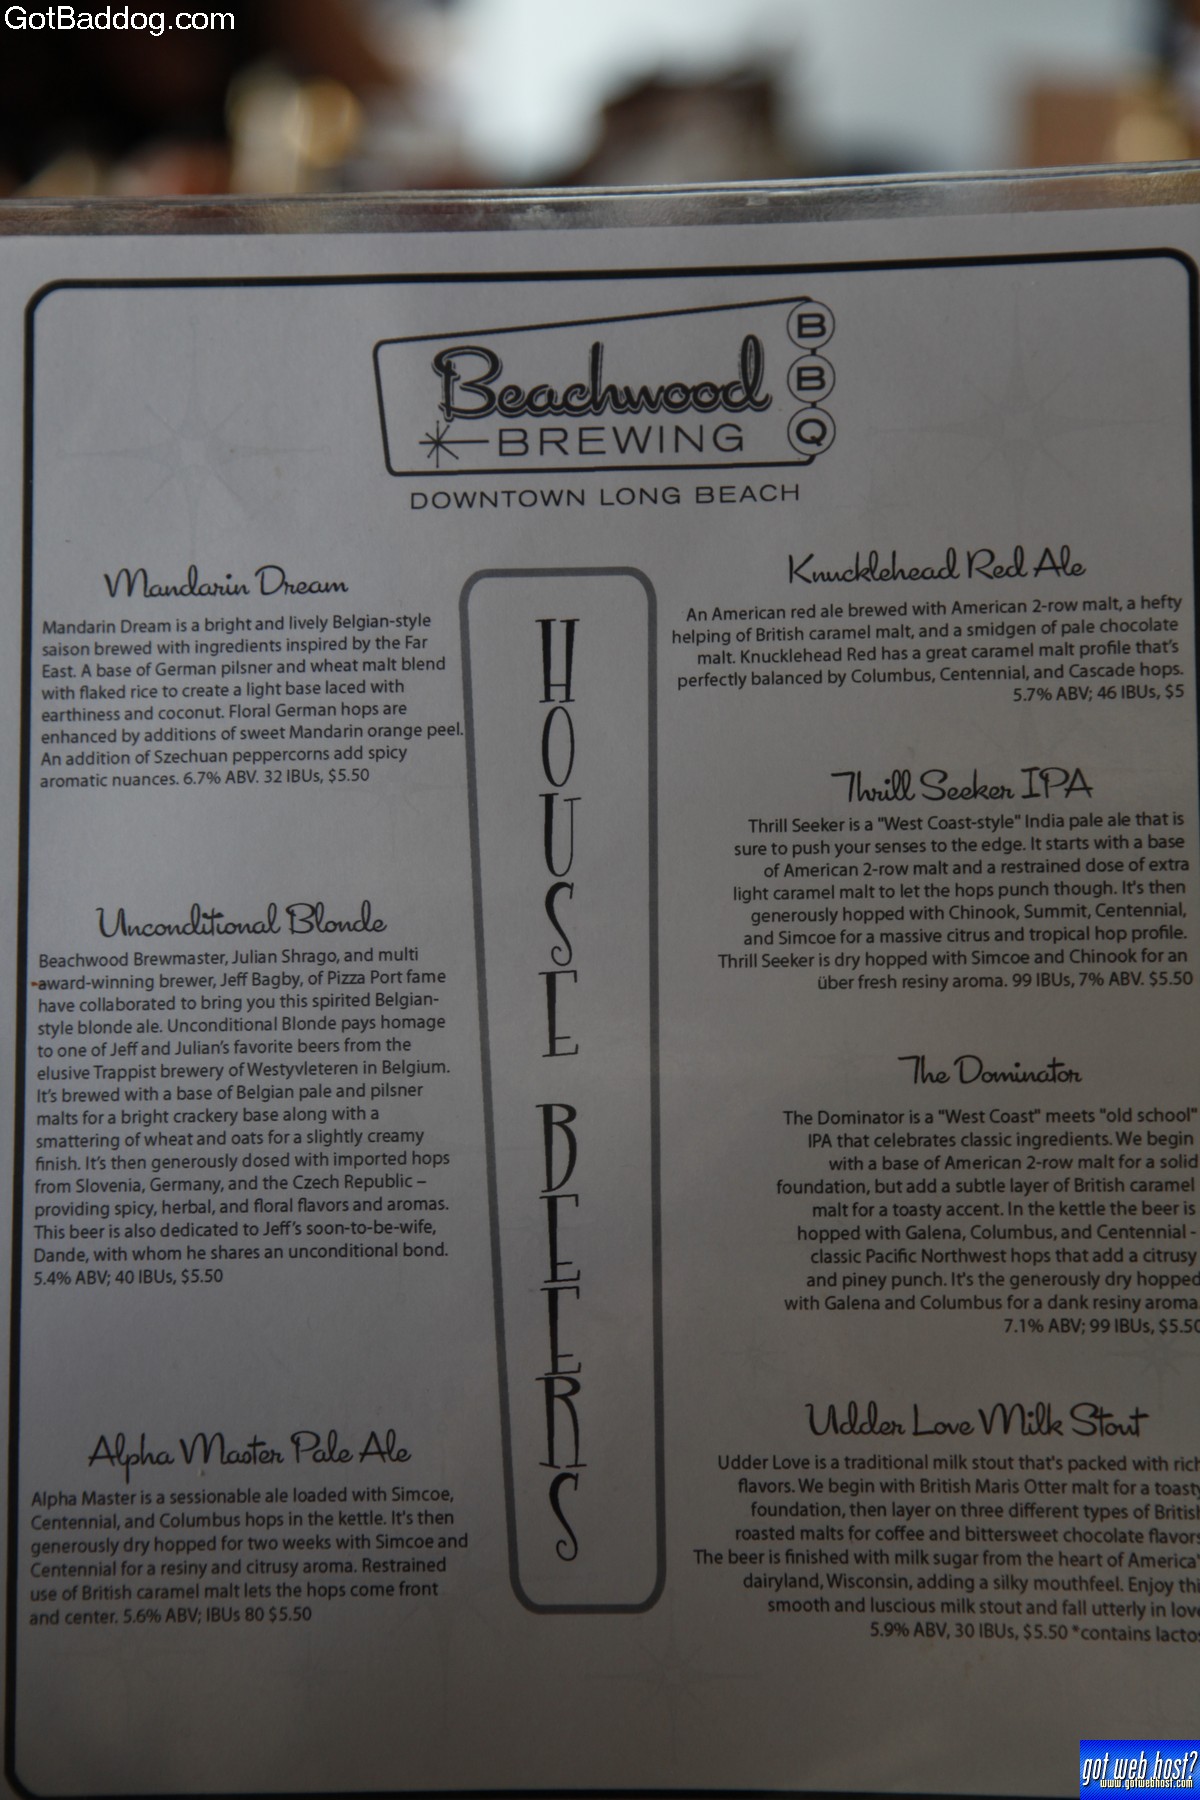 GotBaddog.com
Beachwood
BREWING
BBQ
DOWNTOWN LONG BEACH
Mandarin Dream
Mandarin Dream is a bright and lively Belgian-style
saison brewed with ingredients inspired by the Far
East. A base of German pilsner and wheat malt blend
with flaked rice to create a light base laced with
earthiness and coconut. Floral German hops are
enhanced by additions of sweet Mandarin orange peel.
An addition of Szechuan peppercorns add spicy
aromatic nuances. 6.7% ABV. 32 IBUs, $5.50
Unconditional Blonde
Beachwood Brewmaster, Julian Shrago, and multi
-award-winning brewer, Jeff Bagby, of Pizza Port fame
have collaborated to bring you this spirited Belgian-
style blonde ale. Unconditional Blonde pays homage
to one of Jeff and Julian's favorite beers from the
elusive Trappist brewery of Westyvleteren in Belgium.
It's brewed with a base of Belgian pale and pilsner
malts for a bright crackery base along with a
smattering of wheat and oats for a slightly creamy
finish. It's then generously dosed with imported hops
from Slovenia, Germany, and the Czech Republic –
providing spicy, herbal, and floral flavors and aromas.
This beer is also dedicated to Jeff's soon-to-be-wife,
Dande, with whom he shares an unconditional bond.
5.4% ABV; 40 IBUs, $5.50
Alpha Master Pale Ale
Alpha Master is a sessionable ale loaded with Simcoe,
Centennial, and Columbus hops in the kettle. It's then
generously dry hopped for two weeks with Simcoe and
Centennial for a resiny and citrusy aroma. Restrained
use of British caramel malt lets the hops come front
and center. 5.6% ABV; IBUs 80 $5.50
HOUSE BEERS
Knucklehead Red Ale
An American red ale brewed with American 2-row malt, a hefty
helping of British caramel malt, and a smidgen of pale chocolate
malt. Knucklehead Red has a great caramel malt profile that's
perfectly balanced by Columbus, Centennial, and Cascade hops.
5.7% ABV; 46 IBUs, $5
Thrill Seeker IPA
Thrill Seeker is a "West Coast-style" India pale ale that is
sure to push your senses to the edge. It starts with a base
of American 2-row malt and a restrained dose of extra
light caramel malt to let the hops punch though. It's then
generously hopped with Chinook, Summit, Centennial,
and Simcoe for a massive citrus and tropical hop profile.
Thrill Seeker is dry hopped with Simcoe and Chinook for an
über fresh resiny aroma. 99 IBUs, 7% ABV. $5.50
The Dominator
The Dominator is a "West Coast" meets "old school"
IPA that celebrates classic ingredients. We begin
with a base of American 2-row malt for a solid
foundation, but add a subtle layer of British caramel
malt for a toasty accent. In the kettle the beer is
hopped with Galena, Columbus, and Centennial -
classic Pacific Northwest hops that add a citrusy
and piney punch. It's the generously dry hopped
with Galena and Columbus for a dank resiny aroma
7.1% ABV; 99 IBUs, $5.50
Udder Love Milk Stout
Udder Love is a traditional milk stout that's packed with rich
flavors. We begin with British Maris Otter malt for a toasty
foundation, then layer on three different types of British
roasted malts for coffee and bittersweet chocolate flavors
The beer is finished with milk sugar from the heart of America'
dairyland, Wisconsin, adding a silky mouthfeel. Enjoy thi
smooth and luscious milk stout and fall utterly in love
5.9% ABV, 30 IBUs, $5.50 *contains lactos
got web host?
www.gotwebhost.com